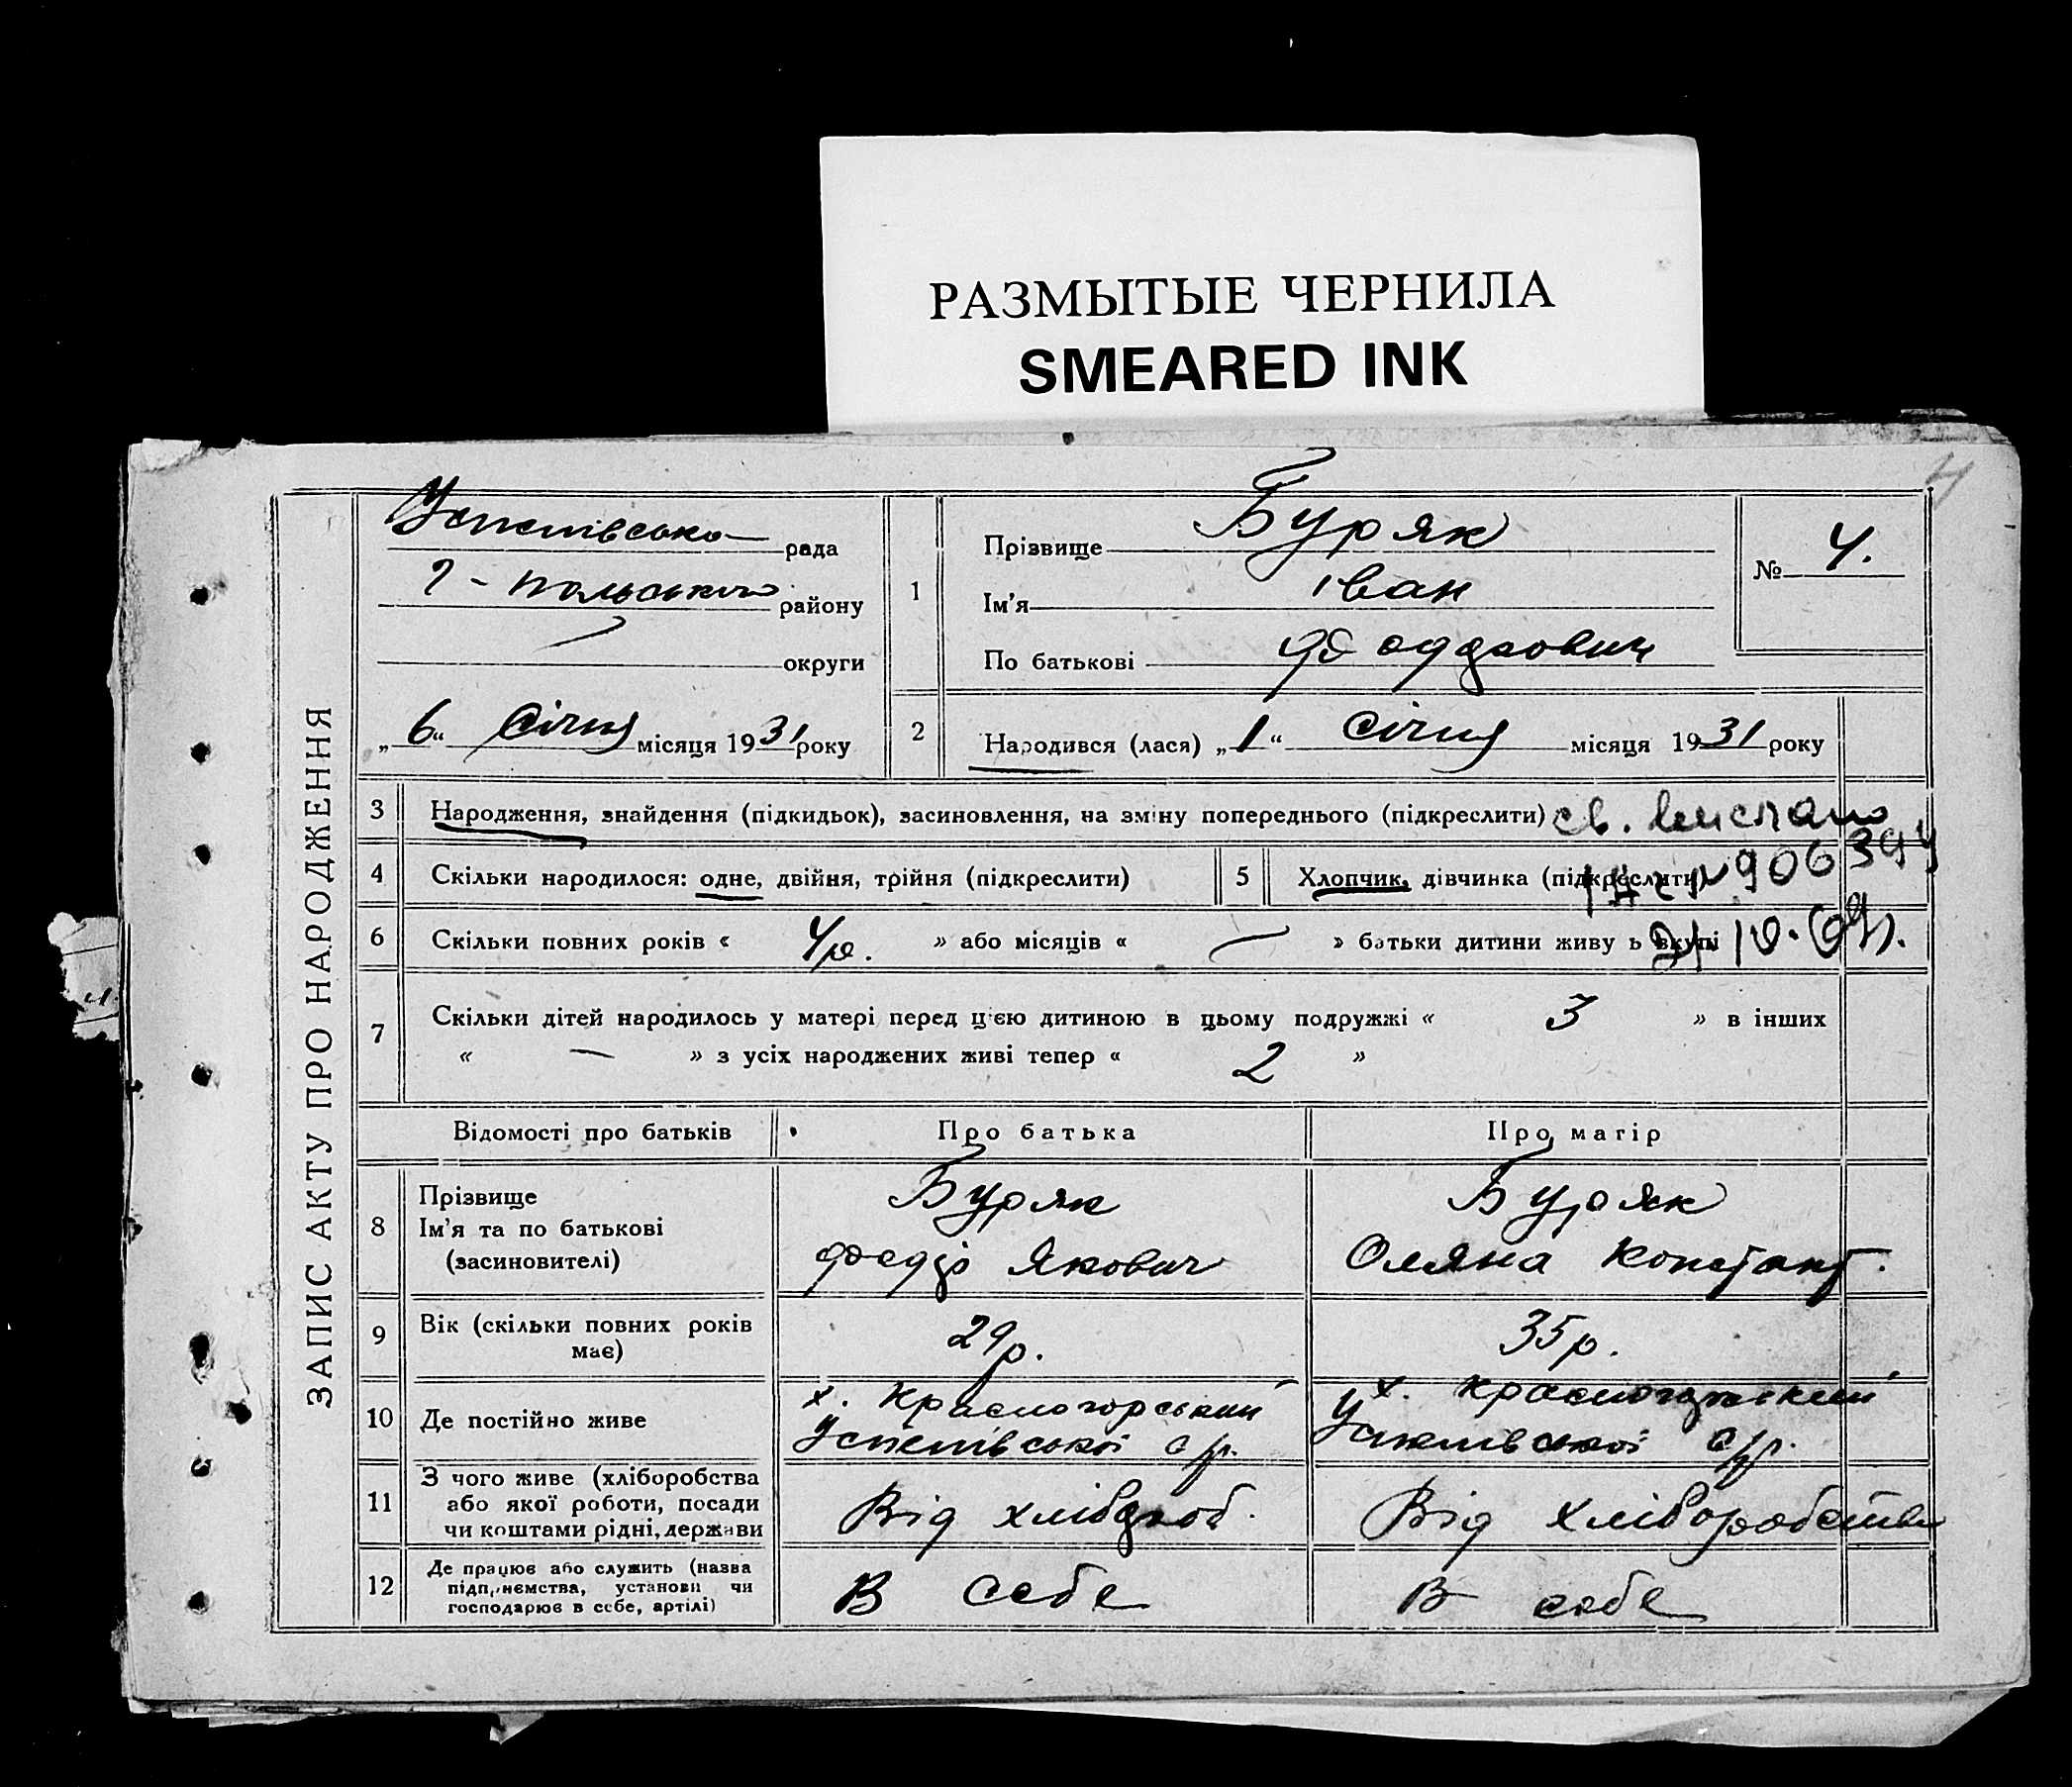 РАЗМЫТЫЕ ЧЕРНИЛА
SMEARED INK
4
ЗАПИС АКТУ ПРО НАРОДЖЕННЯ
рада
району
округи
„6“ Січня місяця 1931 року
1
Прізвище Буряк
Ім’я Іван
По батькові
№ 4.
2
Народився (лася) „1“ Січня місяця 1931 року
3 Народження, знайдення (підкидьок), засиновлення, на зміну попереднього (підкреслити) св.
4 Скільки народилося: одне, двійня, трійня (підкреслити)
5 Хлопчик, дівчинка (підкреслити)
6 Скільки повних років « 4р. » або місяців « — » батьки дитини живу ь вкупі
7 Скільки дітей народилось у матері перед цією дитиною в цьому подружжі « 3 » в інших
« — » з усіх народжених живі тепер « 2 »
Відомості про батьків
Про батька
Про матір
8 Прізвище
Ім’я та по батькові
(засиновителі)
Буряк
Якович
Буряк
Оляна Констант.
9 Вік (скільки повних років
має)
29р.
35р.
10 Де постійно живе
х. Красногорський
Успенівської с/р.
х. Красногорський
Успенівської с/р.
11 З чого живе (хліборобства
або якої роботи, посади
чи коштами рідні, держави
Від хлібороб.
Від хліборобства
12 Де працює або служить (назва
підприємства, установи чи
господарює в себе, артілі)
В себе
В себе